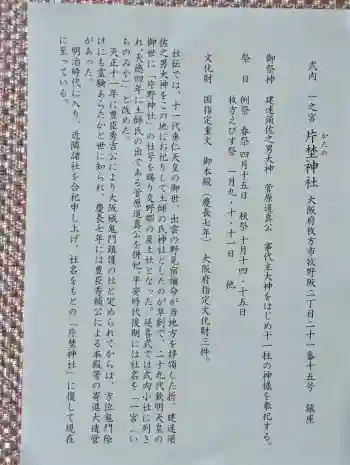 かたの
式内 一之宮 片埜神社 大阪府枚方市牧野阪二丁目二十一番十五号 鎮座
御祭神 建速須佐之男大神 菅原道真公 事代主大神をはじめ十一柱の神様を奉祀する。
祭 日 例祭 春祭 四月十五日 秋祭 十月十四・十五日
枚方えびす祭 一月九・十・十一日 他
文化財 国指定重文 御本殿(慶長七年) 大阪府指定文化財三件。
社伝では、十一代垂仁天皇の御世、出雲の野見宿禰分が当地方を拝領した折、建速須
佐之男大神をこの地にお祀りして土師の氏神社としたのが草創で、二十九代欽明天皇の
御世に「片野神社」の社号を賜り交野郡の鼻土社となった。延喜式では式内小社に列き
れ、天徳四年に土師氏の出である菅原道真公を併祀、平安時代後期には社名を「一宮(い
ちのみや)」と改めた。
天正十一年に豊臣秀吉公により大阪城鬼門鎮護の社と定められてからは、方位鬼門除
けにも霊験あらたかと世に知られ、慶長七年には豊臣秀頼公による本殿等の寄進大造営
があった。
明治時代に入り、近隣諸社を合祀申し上げ、社名をもとの「片埜神社」に復して現在
に至っている。